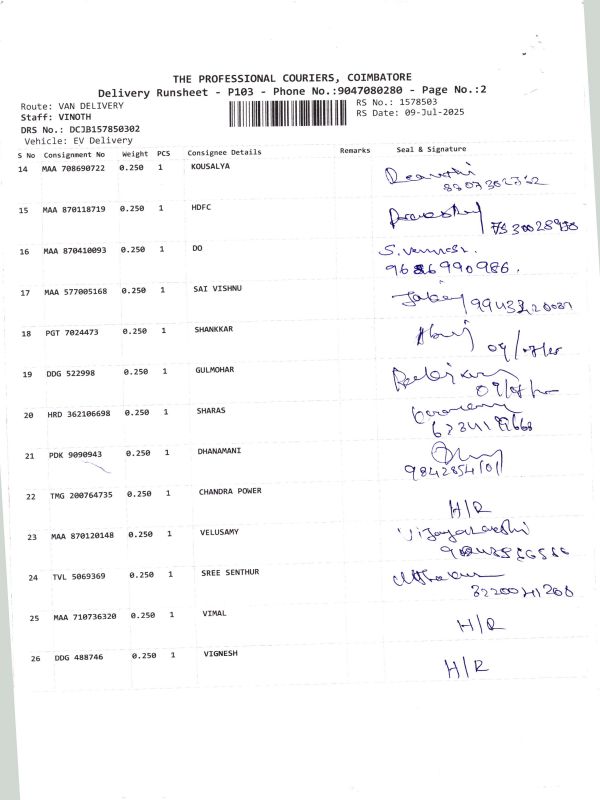 THE PROFESSIONAL COURIERS, COIMBATORE
Delivery Runsheet - P103 - Phone No.:9047080280 - Page No.:2
Route: VAN DELIVERY
RS No.: 1578503
Staff: VINOTH
RS Date: 09-Jul-2025
DRS No.: DCJB157850302
Vehicle: EV Delivery
S No Consignment No Weight PCS Consignee Details Remarks Seal & Signature
14 MAA 708690722 0.250 1 KOUSALYA
15 MAA 870118719 0.250 1 HDFC
16 MAA 870410093 0.250 1 DO
9686990986.
17 MAA 577005168 0.250 1 SAI VISHNU
18 PGT 7024473 0.250 1 SHANKKAR
19 DDG 522998 0.250 1 GULMOHAR
20 HRD 362106698 0.250 1 SHARAS
21 PDK 9090943 0.250 1 DHANAMANI
9842854101
22 TMG 200764735 0.250 1 CHANDRA POWER
H/R
23 MAA 870120148 0.250 1 VELUSAMY
24 TVL 5069369 0.250 1 SREE SENTHUR
25 MAA 710736320 0.250 1 VIMAL
H/R
26 DDG 488746 0.250 1 VIGNESH
H/R